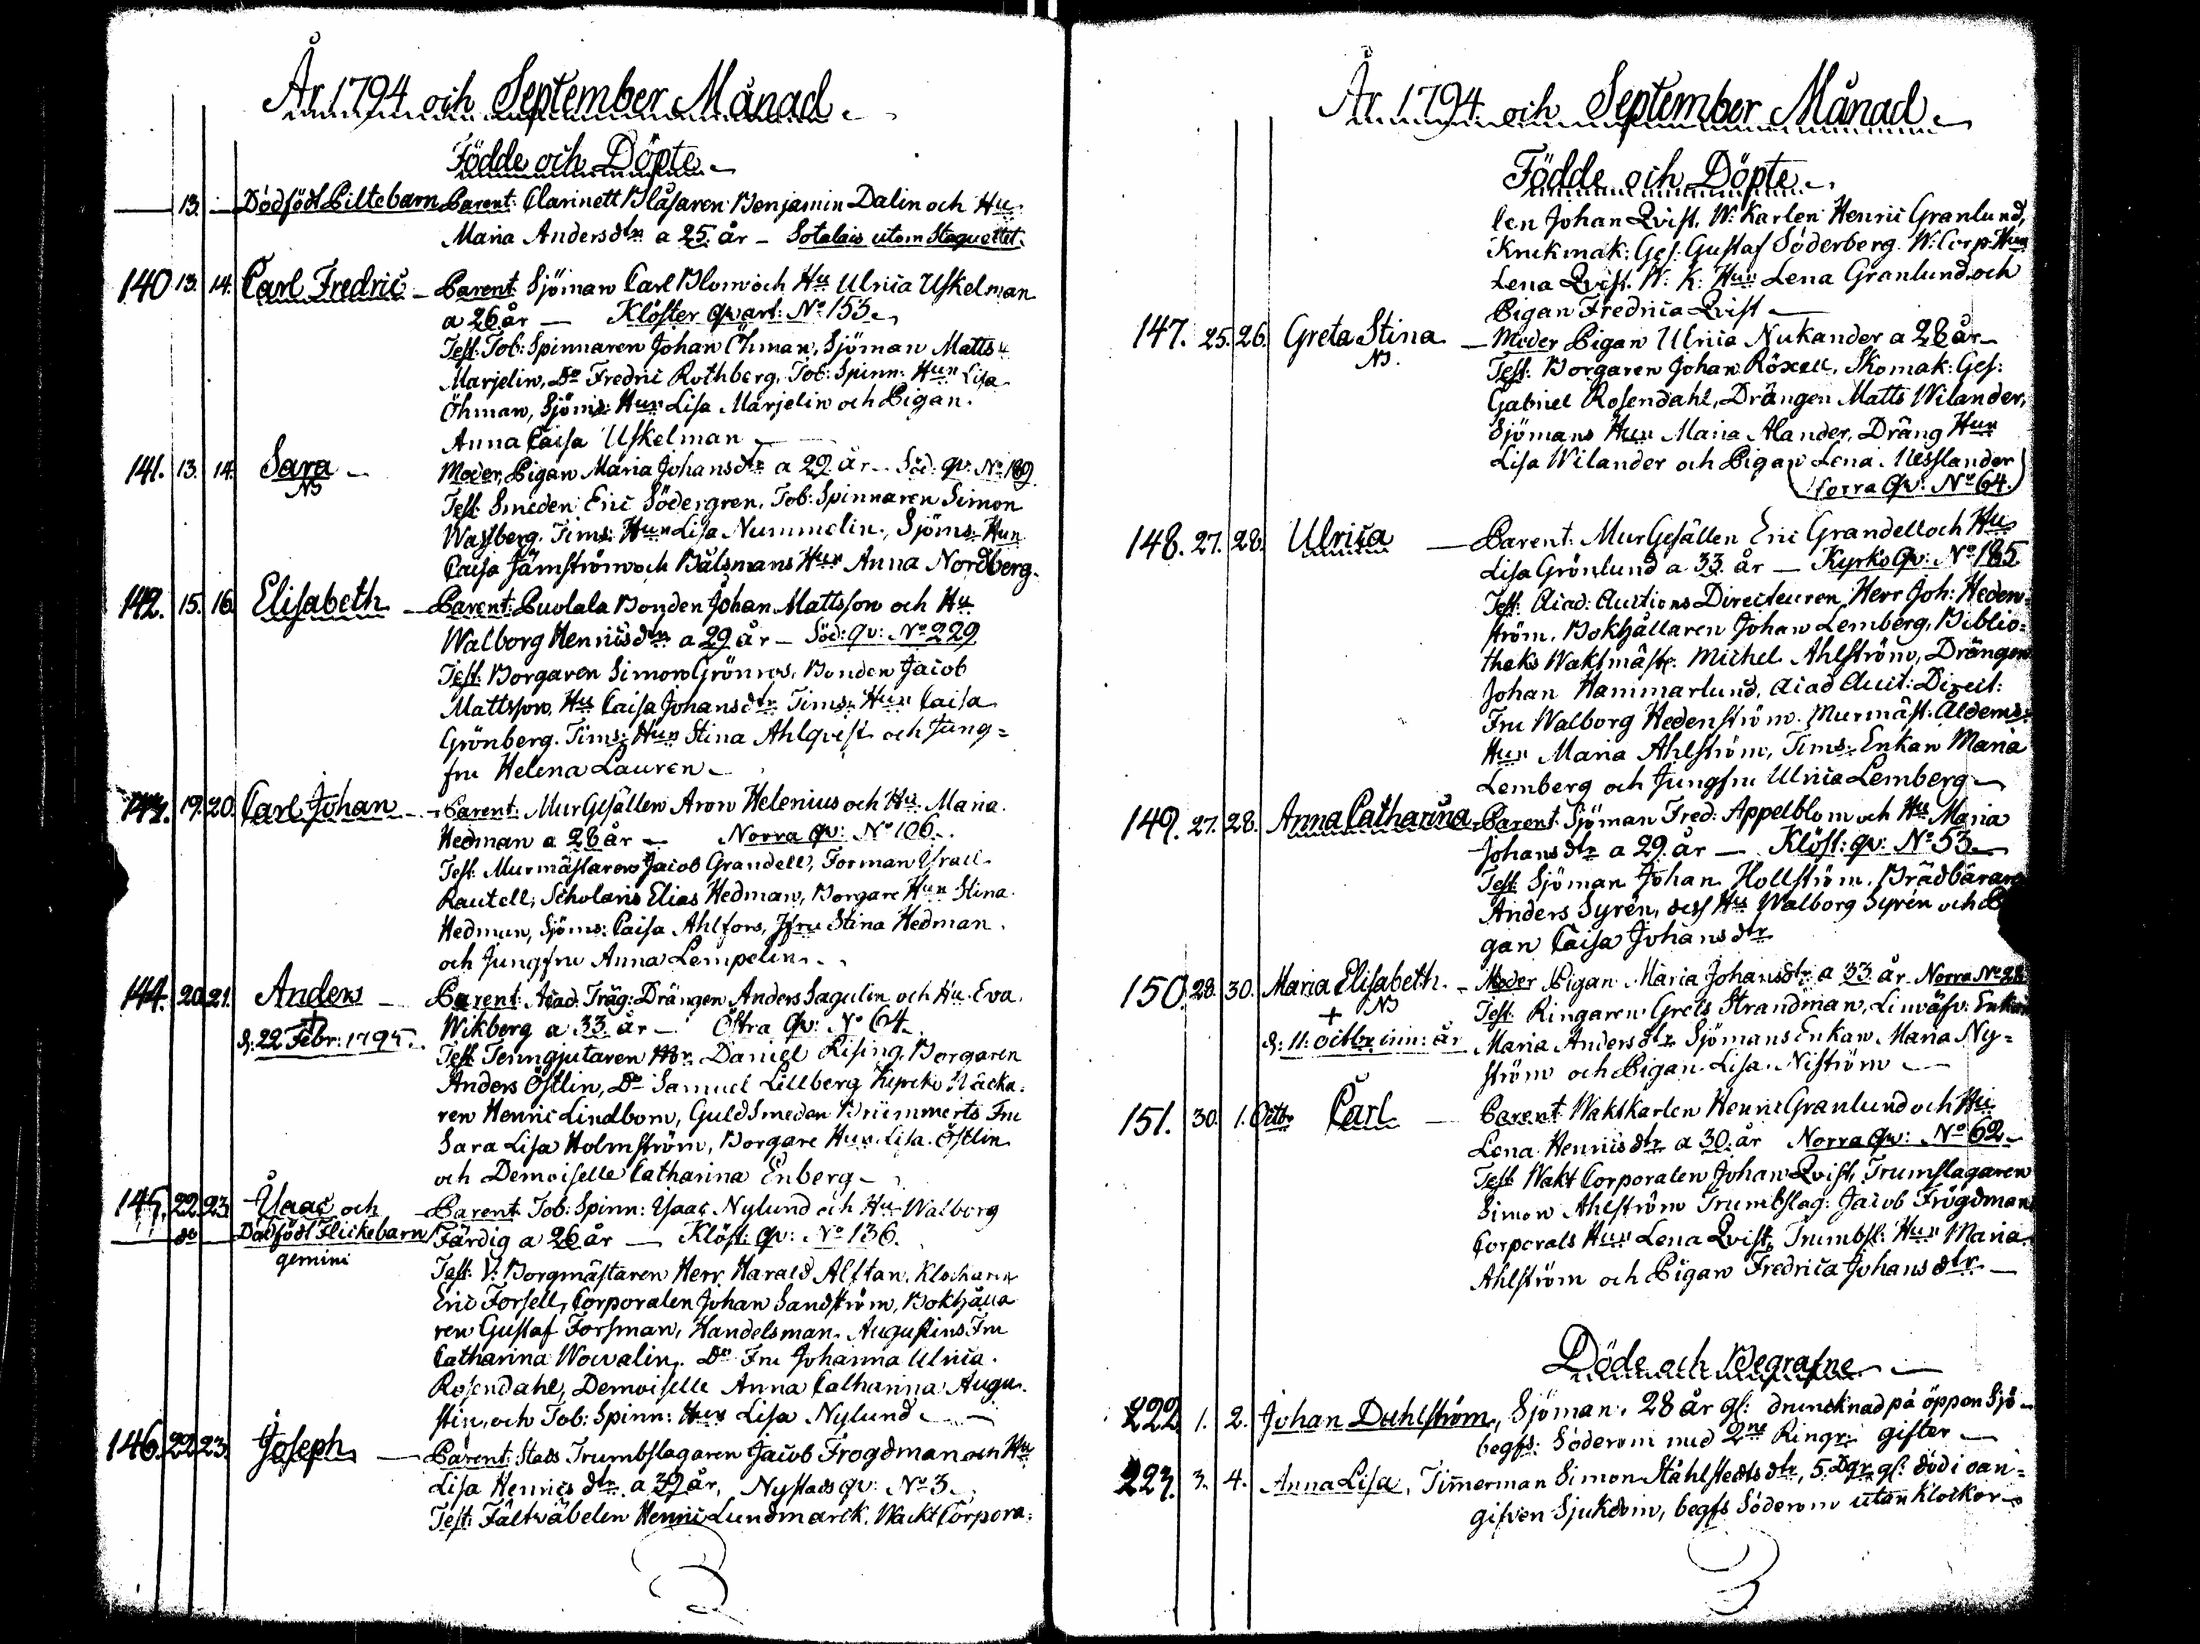 År 1794 och September Månad.
Födde och Döpte.
13. Dödfödt Piltebarn Parent: Clarinett Blåsaren Benjamin Dalin och Hu
Maria Andersdtr a 25. år – Sotalais utom Staquettet.
140 13. 14. Carl Fredric – Parent Sjöman Carl Blom och Hu Ulrica Uskelman
a 26 år — Klöster qvart: No 155.
Test: Tob: Spinnaren Johan Öhman, Sjöman Matts
Marjelin, Do Fredric Rothberg, Tob: Spinn: Hun Lisa
Öhman, Sjöms: Hun Lisa Marjelin och Pigan
Anna Caisa Uskelman
141. 13. 14. Sara – Moder, Pigan Maria Johansdtr a 29. år – Söd: qv: No 189
NB
Test: Smeden Eric Södergren, Tob: Spinnaren Simon
Wassberg. Tims: Hun Lisa Nummelin, Sjöms: Hun
Caisa Jämström och Båtsmans Hun Anna Nordberg.
142. 15. 16. Elisabeth – Parent: Puolala Bonden Johan Mattsson och Hu
Walborg Henricsdtr a 29 år – Söd: qv: No 229
Test: Borgaren Simon Grönros, Bonden Jacob
Mattsson, Hu Caisa Johansdtr Tims: Hun Caisa
Grönberg. Tims: Hun Stina Ahlqvist och Jung=
fru Helena Lauren
143. 19. 20. Carl Johan – Parent: MurGesällen Aron Helenius och Hu Maria
Hedman a 28 år – Norra qv: No 106.
Test: Murmästaren Jacob Grandell, Forman Israel
Rautell, Scholaris Elias Hedman, Borgare Hun Stina
Hedman, Sjöms: Caisa Ahlfors, Jfru Stina Hedman
och Jungfru Anna Lempelin.
144. 20. 21. Anders – Parent: Acad. Träg: Drängen Anders Sagulin och Hu Eva
d: 22 Febr: 1795. Wikberg a 33 år — Östra qv: No 64.
Test Tenngjutaren Mr Daniel Rising, Borgaren
Anders Östlin, Do Samuel Lillberg
ren Henric Lindbom, GuldSmeden Brümmerts Fru
Sara Lisa Holmström, Borgare Hun Lisa Östlin
och Demoiselle Catharina Enberg –
145. 22. 23. Isaac och Parent Tob: Spinn: Isaac Nylund och Hu Walborg
do Dödfödt Flickebarn Färdig a 26 år — Klöst: qv: No 136.
gemini
Test: V: Borgmästaren Herr Harald Alftan,
Eric Forsell, Corporalen Johan Sandström, Bokhålla
ren Gustaf Forsman, Handelsman Augustins Fru
Catharina Wowalin, Do Fru Johanna Ulrica
Rosendahl, Demoiselle Anna Catharina Augu
stin, och Tob: Spinn: Hun Lisa Nylund
146. 22. 23. Joseph — Parent: Stads Trumbslagaren Jacob Frogdman och Hu
Lisa Henricsdtr a 39 år, Nystads qv: No 3.
Test: Fältväbelen Henric Lundmarck, Wackt Corpora:
År 1794 och September Månad
Födde och Döpte.
len Johan Qvist, W: Karlen Henric Granlund,
Krukmak: Ges: Gustaf Söderberg. W: Corp: Hun
Lena Qvist. W. K: Hun Lena Granlund och
Pigan Fredrica Qvist
147. 25. 26. Greta Stina – Moder Pigan Ulrica Nukander a 28 år
NB.
Test: Borgaren Johan Röxell, Skomak: Ges:
Gabriel Rosendahl, Drängen Matts Wilander,
Sjömans Hun Maria Alander, Dräng Hun
Lisa Wilander och Pigan Lena Messlander
(Norra Qv: No 64.)
148. 27. 28. Ulrica — Parent: MurGesällen Eric Grandell och Hu
Lisa Grönlund a 33 år – Kyrko Qv: No 185
Test: Acad: Auctions Directeuren Herr Joh: Heden=
ström, Bokhållaren Johan Lemberg, Biblio=
theks Waktmäst. Michel Ahlström, Drängen
Johan Hammarlund, Acad Auct: Direct:
Fru Walborg Hedenström. Murmäst: Alderms:
Hun Maria Ahlström, Tims: Enkan Maria
Lemberg och Jungfru Ulrica Lemberg
149. 27. 28. Anna Catharina – Parent Sjöman Fred: Appelblom och Hu Maria
Johansdtr a 29 år — Klöst: qv: No 53
Test: Sjöman Johan Hollström, Brädbärare
Anders Syrén, dess Hu Walborg Syrén och
gan Caisa Johansdtr
150. 28. 30. Maria Elisabeth – Moder Pigan Maria Johansdtr a 33 år Norra No 28
+ NB
Test: Ringaren Grels Strandman, Linväfv: Enkan
d: 11: octbr inn: år Maria Andersdtr Sjömans Enkan Maria Ny=
ström och Pigan Lisa Niström
151. 30. 1. Octbr Carl — Parent Waktkarlen Henric Granlund och Hu
Lena Henricsdtr a 30 år Norra qv: No 62
Test Wakt Corporalen Johan Qvist, Trumslagaren
Simon Ahlström Trumbslag: Jacob Frogdman
Corporals Hun Lena Qvist, Trumbsl: Hun Maria
Ahlström och Pigan Fredrica Johansdtr —
Döde och Begrafne
222. 1. 2. Johan Dahlström, Sjöman, 28 år gl: druncknad på öppon Sjö
begfs: Söderom med 2ne Ringr: gifter —
223. 3. 4. Anna Lisa, Timmerman Simon Ståhlstedts dtr, 5. Dgr gl: död i oan=
gifven Sjukdom, begfs Söderom utan Klockor